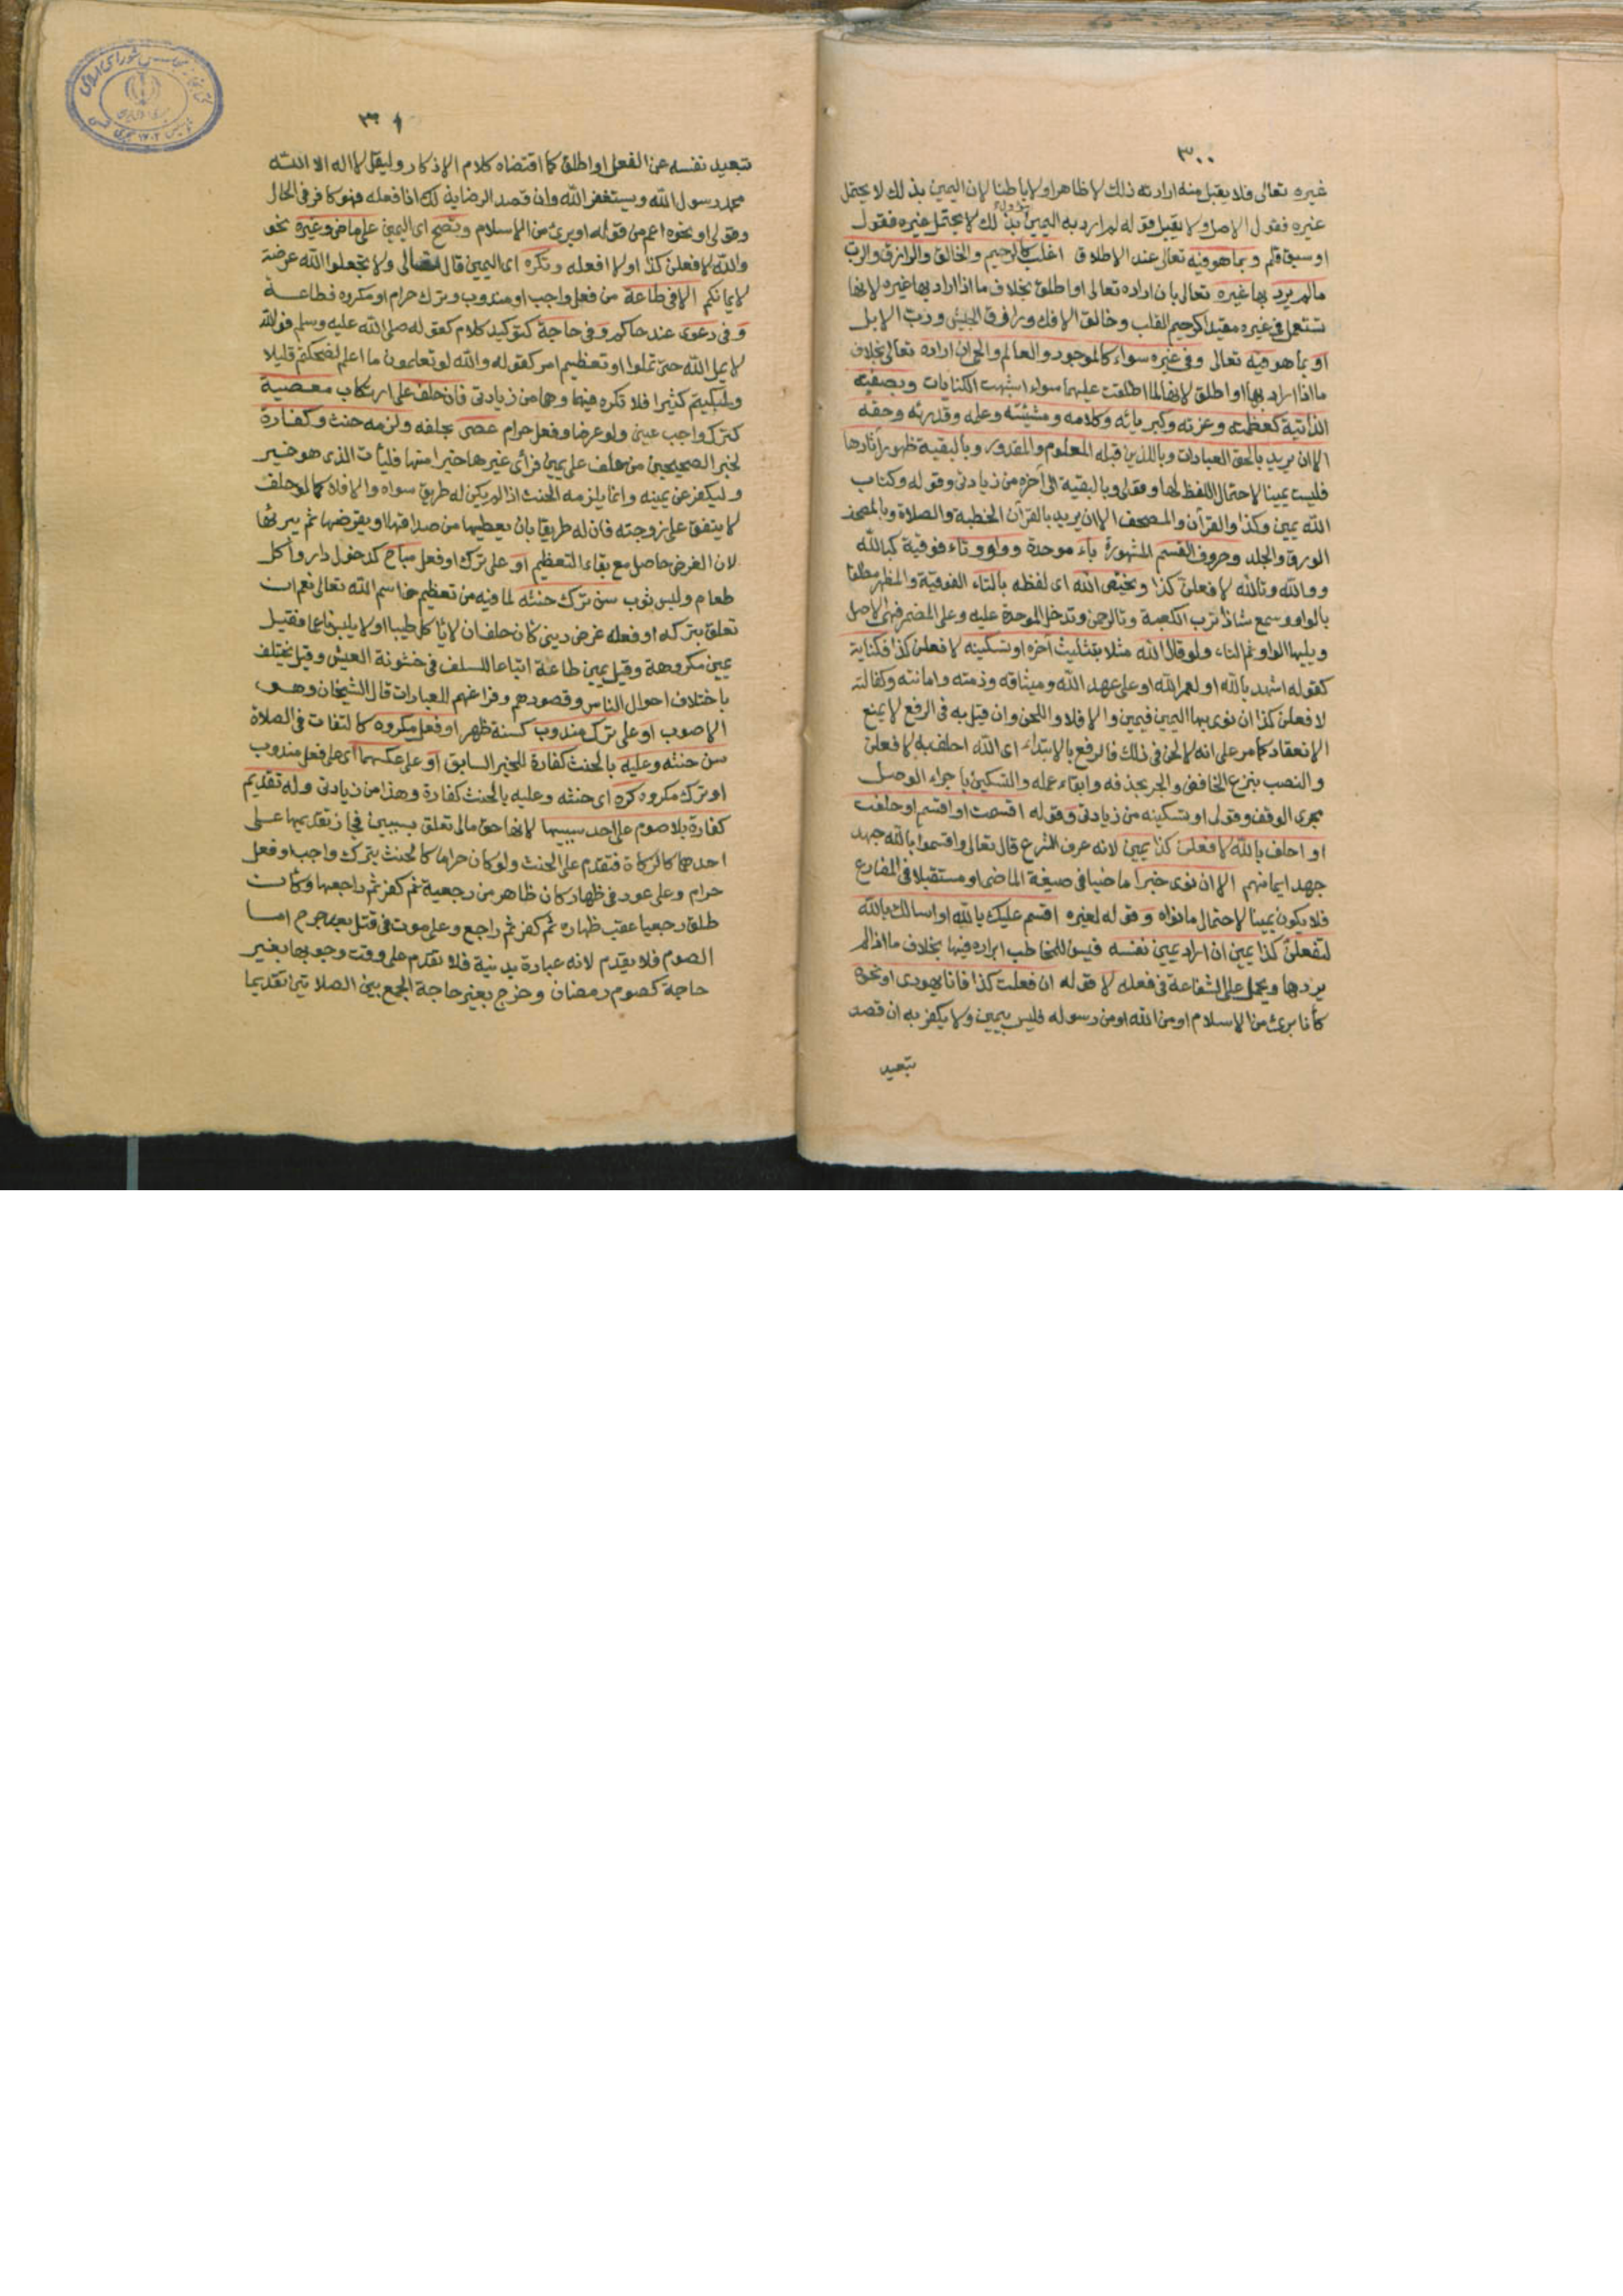 ٣٠٠
غيره تعالى فلا يقبل منه ارادته ذلك لا ظاهرا ولا باطنا لان اليمين بذلك لا يحتمل
غيره فقول الاصل ولا يقبل قوله لم ارد به اليمين بذلك لا يحتمل غيره فقول
او سبق قلم وبما هو فيه تعالى عند الاطلاق اغلب كالرحيم والخالق والرازق والرب
مالم يرد بها غيره تعالى بان اراده تعالى او اطلق بخلاف ما اذا اراد بها غيره لانها
تستعمل في غيره مقيدا كرحيم القلب وخالق الافك ورازق الجيش ورب الابل
او بما هو فيه تعالى وفي غيره سواء كالموجود والعالم والحي ان اراده تعالى بخلاف
ما اذا اراد بها او اطلق لانها لما اطلقت عليهما سواء اشبهت الكنايات وبصفته
الذاتية كعظمته وعزته وكبريائه وكلامه ومشيئته وعلمه وقدرته وحقه
الا ان يريد بالحق العبادات وباللذين قبله المعلوم والمقدور وبالبقية ظهور آثارها
فليست يمينا لاحتمال اللفظ لها وقولى وبالبقية الى آخره من زيادتى وقوله وكتاب
الله يمين وكذا والقرآن والمصحف الا ان يريد بالقرآن الخطبة والصلاة وبالمصحف
الورق والجلد وحروف القسم المشهورة باء موحدة وواو وتاء فوقية كبالله
ووالله وتالله لافعلن كذا ويختص الله اى لفظه بالتاء الفوقية والمظهر مطلقا
بالواو وسمع شاذا ترب الكعبة وتالرحمن وتدخل الموحدة عليه وعلى المضمر فهي الاصل
ويليها الواو ثم التاء ولو قال الله مثلا بتثليث آخره او تسكينه لافعلن كذا فكناية
كقوله اشهد بالله او لعمر الله او على عهد الله وميثاقه وذمته وامانته وكفالته
لافعلن كذا ان نوى بها اليمين فيمين والا فلا واللحن وان قيل به في الرفع لا يمنع
الانعقاد كما مر على انه لا لحن في ذلك فالرفع بالابتداء اى الله احلف به لافعلن
والنصب بنزع الخافض والجر بحذفه وابقاء عمله والتسكين باجراء الوصل
مجرى الوقف وقولى او بتسكينه من زيادتى وقوله اقسمت او اقسم او حلفت
او احلف بالله لافعلن كذا يمين لانه عرف الشرع قال تعالى واقسموا بالله جهد
جهد ايمانهم الا ان نوى خبرا ماضيا في صيغة الماضى او مستقبلا في المضارع
فلا يكون يمينا لاحتمال ما نواه وقوله لغيره اقسم عليك بالله او اسالك بالله
لتفعلن كذا يمين ان اراد يمين نفسه فيسن للمخاطب ابراره فيها بخلاف ما اذا لم
يردها ويحمل على الشفاعة في فعله لا قوله ان فعلت كذا فانا يهودى او نحوه
كانا برئ من الاسلام او من الله او من رسوله فليس بيمين ولا يكفر به ان قصد
تبعيد
تبعيد نفسه عن الفعل او اطلق كما اقتضاه كلام الاذكار وليقل لا اله الا الله
محمد رسول الله ويستغفر الله وان قصد الرضا بذلك اذا فعله فهو كافر في الحال
وقولى او نحوه اعم من قوله او برئ من الاسلام وتصح اى اليمين على ماض وغيره نحو
والله لافعلن كذا او لا افعله وتكره اى اليمين قال تعالى ولا تجعلوا الله عرضة
لايمانكم الا في طاعة من فعل واجب او مندوب وترك حرام او مكروه فطاعة
وفى دعوى عند حاكم وفي حاجة كتوكيد كلام كقوله صلى الله عليه وسلم فوالله
لا يمل الله حتى تملوا او تعظيم امر كقوله والله لو تعلمون ما اعلم لضحكتم قليلا
ولبكيتم كثيرا فلا تكره فيهما وهما من زيادتى فان حلف على ارتكاب معصية
كترك واجب عيني ولو عرضا وفعل حرام عصى بحلفه ولزمه حنث وكفارة
لخبر الصحيحين من حلف على يمين فرأى غيرها خيرا منها فليأت الذى هو خير
وليكفر عن يمينه وانما يلزمه الحنث اذا لم يكن له طريق سواه والا فلا كما لو حلف
لا ينفق على زوجته فان له طريقا بان يعطيها من صداقها او يقرضها ثم يبرئها
لان الغرض حاصل مع بقاء التعظيم او على ترك او فعل مباح كدخول دار واكل
طعام ولبس ثوب سن ترك حنثه لما فيه من تعظيم اسم الله تعالى نعم ان
تعلق بتركه او فعله غرض ديني كان حلف ان لا يأكل طيبا او لا يلبس ناعما فقيل
يمين مكروهة وقيل يمين طاعة اتباعا للسلف في خشونة العيش وقيل يختلف
باختلاف احوال الناس وقصودهم وفراغهم للعبادات قال الشيخان وهو
الاصوب او على ترك مندوب كسنة ظهر او فعل مكروه كالتفات في الصلاة
سن حنثه وعليه بالحنث كفارة للخبر السابق او على عكسهما اى على فعل مندوب
او ترك مكروه كره اى حنثه وعليه بالحنث كفارة وهذا من زيادتى وله تقديم
كفارة بلا صوم على احد سببيها لانها حق مالى تعلق بسببين فجاز تقديمها على
احدهما كالزكاة فتقدم على الحنث ولو كان حراما كالحنث بترك واجب او فعل
حرام وعلى عود في ظهار كان ظاهر من رجعية ثم كفر ثم راجعها وكأن
طلق رجعيا عقب ظهاره ثم كفر ثم راجع وعلى موت في قتل بعد جرح اما
الصوم فلا يقدم لانه عبادة بدنية فلا تقدم على وقت وجوبها بغير
حاجة كصوم رمضان وخرج بغير حاجة الجمع بين الصلاتين تقديما